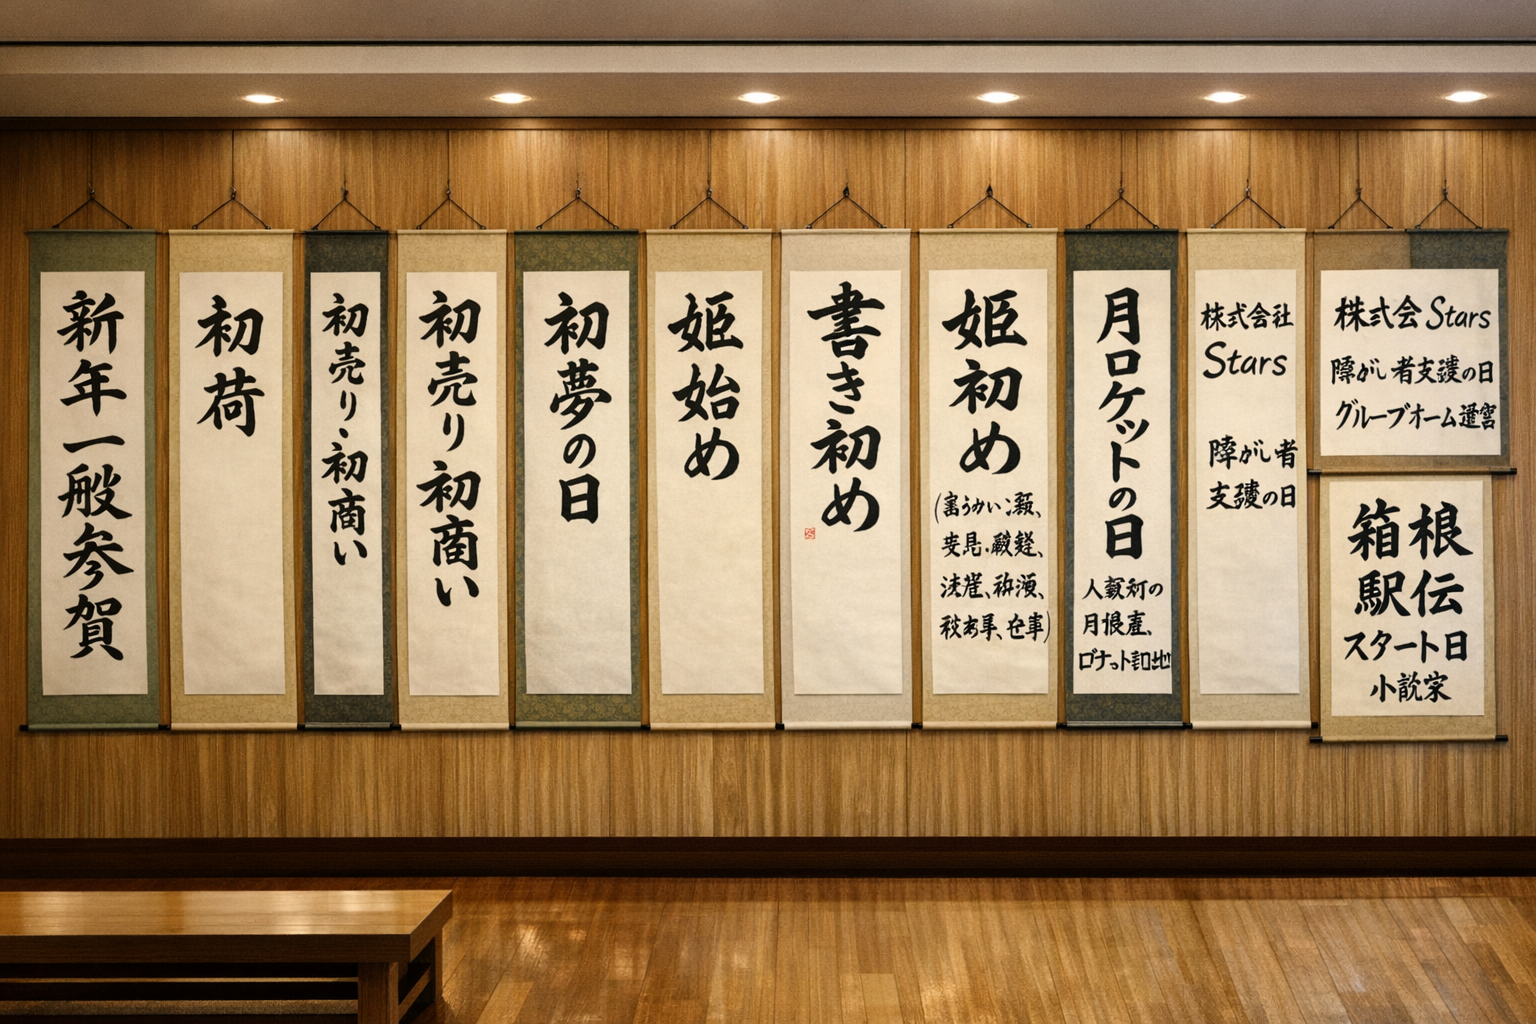 新年一般参賀
初荷
初売り・初商い
初売り初商い
初夢の日
姫始め
書き初め
姫初め
月ロケットの日
株式会社
Stars
障がい者
支援の日
株式会 Stars
障がい者支援の日
グループオーム運営
箱根
駅伝
スタート日
小説家